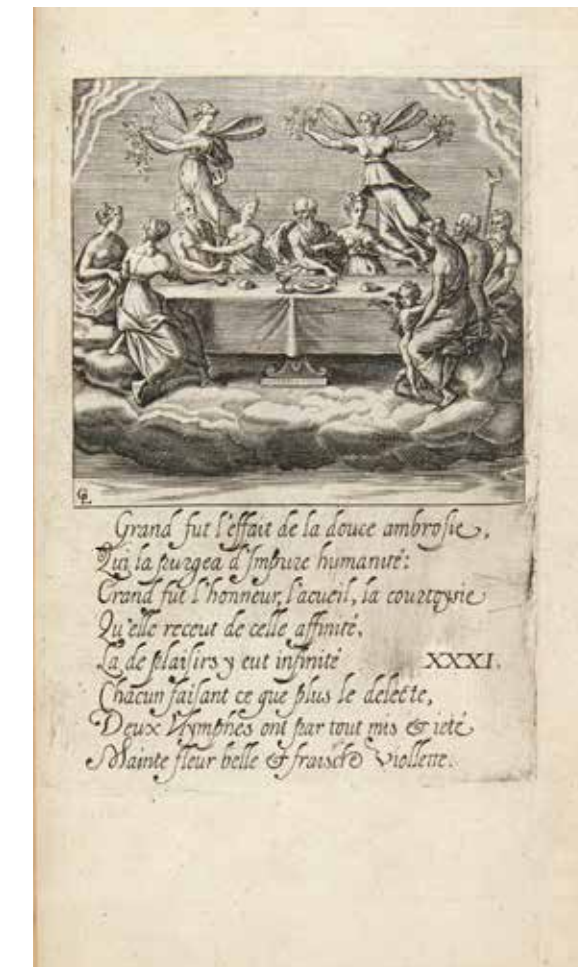 Grand fut l'effait de la douce ambrosie,
Qui la purgea d'Impure humanité:
Grand fut l'honneur, l'acueil, la courtoysie
Qu'elle receut de celle affinité,
La de plaisirs y eut infinité XXXI.
Chacun faisant ce que plus le delecte,
Deux Nymphes ont par tout mis & ieté
Mainte fleur belle & fraische viollette.